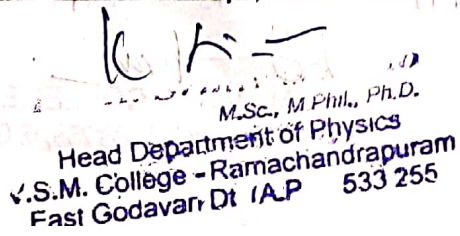 M.Sc., M Phil., Ph.D.
Head Department of Physics
V.S.M. College - Ramachandrapuram
East Godavari Dt (A.P 533 255